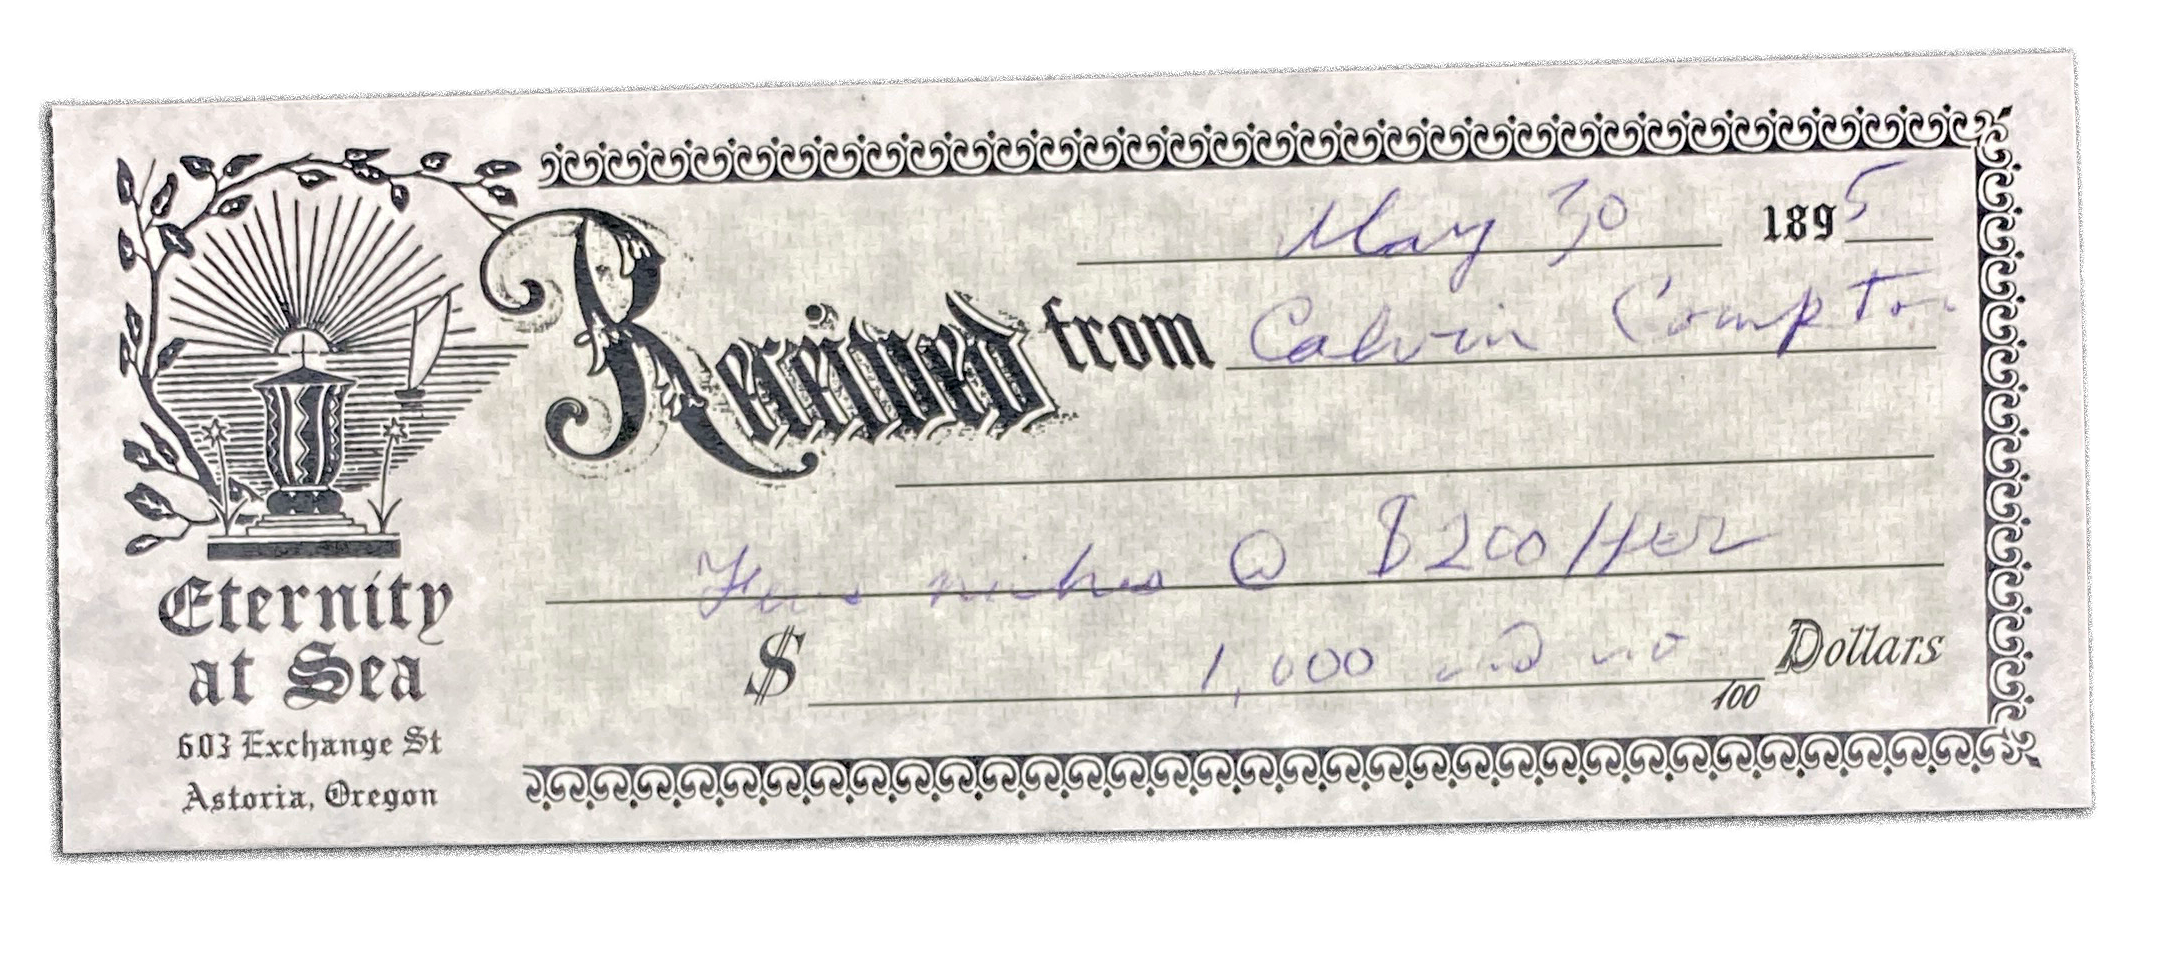 May 30 1895
Received from Calvin Compton
@ $200/per
$ 1,000 and no/100 Dollars
Eternity
at Sea
603 Exchange St
Astoria, Oregon